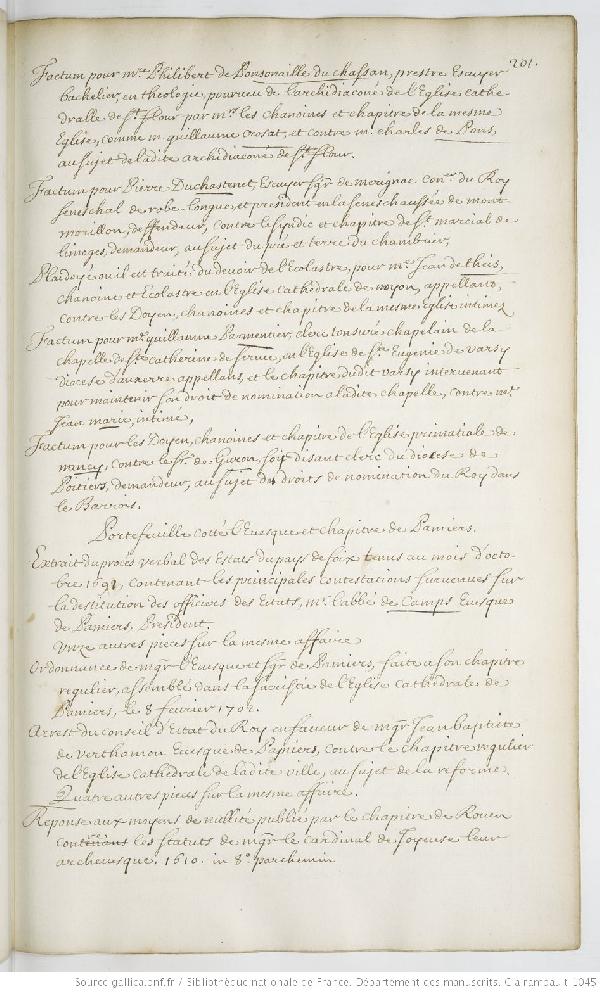 201.
Factum pour mre Philibert de Ponsonaille du chassan, prestre Escuyer
bachelier en theologie, pourueu de l'archidiaconé de l'Eglise cathe-
dralle de St. flour par mrs. les chanoines et chapitre de la mesme
Eglise, comme mr. guillaume crosat, et contre mr. charles de Pons,
au sujet de ladite archidiaconé de St. flour.
Factum pour Pierre Duchastenet, Escuyer sgr. de merignac, coner. du Roy
seneschal de robe longue, et president en la seneschaussée de mont-
morillon, deffendeur, contre le sindic et chapitre de St. marcial de
limoges, demandeur, au sujet du pré et terre du chambrier,
Plaidoyé ou il est traitté du deuoir de l'Ecolastre, pour mre Jean de theis,
chanoine et Ecolastre en l'Eglise Cathédrale de noyon, appellant,
contre les Doyen, chanoines et chapitre de la mesme Eglise intimez
Factum pour mr. guillaume Parmentier, clerc tonsuré chapelain de la
chapelle de Ste catherine de en l'Eglise de Ste Eugenie de varsy
diocese d'auxerre appellant, et le chapitre dudit varsy interuenant
pour maintenir son droit de nomination aladite chapelle, contre mr.
Jean marie, intimé,
Factum pour les Doyen, chanoines et chapitre de l'Eglise primatiale de
nancy, contre le Sr. de Gueon, soy disant clerc du diocese de
Poitiers, demandeur, au sujet du droits de nomination du Roy dans
le Barrois.
Portefeuille cotté l'Euesque et chapitre de Pamiers.
Extrait du procès verbal des Estats du pays de foix tenus au mois d'octo-
bre 1691, contenant les principales contestations suruenues sur
la destitution des officiers des Estats, mr. l'abbé de Camps Euesque
de Pamiers, President.
Unze autres pieces sur la mesme affaire
Ordonnance de mgr. l'Euesque et sgr. de Pamiers, faite a son chapitre
regulier, assemblé dans la sacristie de l'Eglise Cathédrale de
Pamiers, le 8 feurier 1702.
Arrest du conseil d'Estat du Roy en faueur de mgr. Jean baptiste
de verthamon Euesque de Pamiers, contre le chapitre regulier
de l'Eglise Cathédrale de ladite ville, au sujet de la reforme.
Quatre autres pieces sur la mesme affaire.
Reponse aux moyens de nullité publié par le chapitre de Rouen
contre les statuts de mgr. le cardinal de Joyeuse leur
archeuesque. 1610. in 8o. parchemin
Source gallica.bnf.fr / Bibliothèque nationale de France. Département des manuscrits. Clairambault 1045